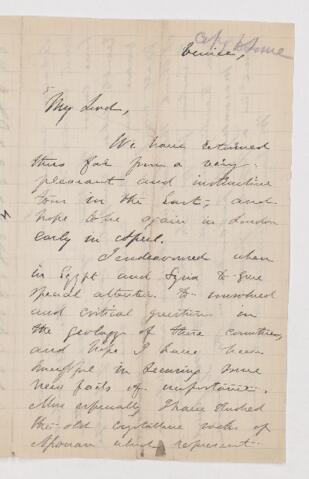 Copy
Venice,
My Lord,
We have returned
thus far from a very
pleasant and instructive
tour in the East, and
hope to be again in London
early in April.
I endeavoured when
in Egypt and Syria to give
special attention to unsolved
and critical questions in
the geology of these countries
and hope I have been
in securing some
new facts of importance.
More especially I have studied
the old crystalline rocks of
Assouan which represent